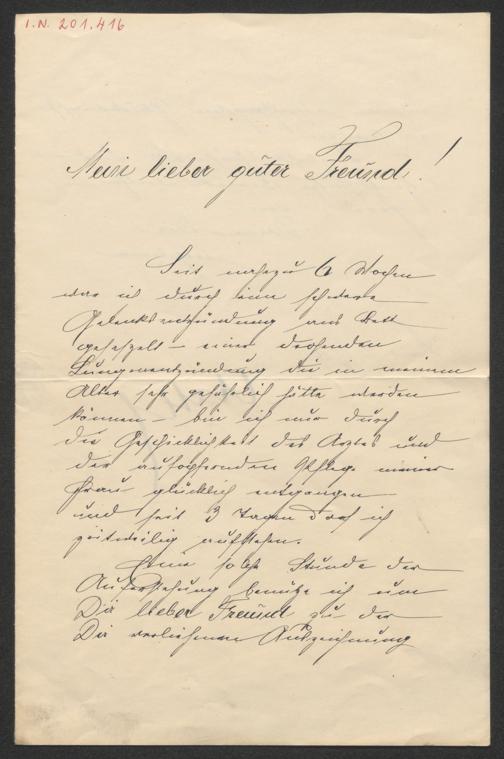 I.N. 201.416
Mein lieber guter Freund!
Seit nahezu 6 Wochen
war ich durch eine schwere
Gelenksentzündung ans Bett
gefesselt – einer drohenden
Lungenentzündung die in meinem
Alter sehr gefährlich hätte werden
können – bin ich nur durch
die Geschicklichkeit des Arztes und
der aufopfernden Pflege meiner
Frau glücklich entgangen
und seit 3 Tagen darf ich
zeitweilig aufstehen.
Eine solche Stunde der
Auferstehung benütze ich um
Dir lieber Freund zu der
Dir verliehenen Auszeichnung